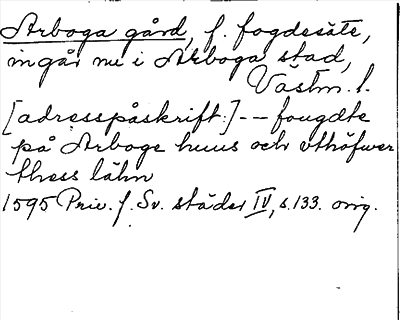 Arboga gård, f. fogdesäte,
ingår nu i Arboga stad,
Västm. l.
[adresspåskrift:] -- fougdte
på Arboge huus och uthöfwer
thess lähn
1595 Priv. f. Sv. städer IV, s. 133. orig.